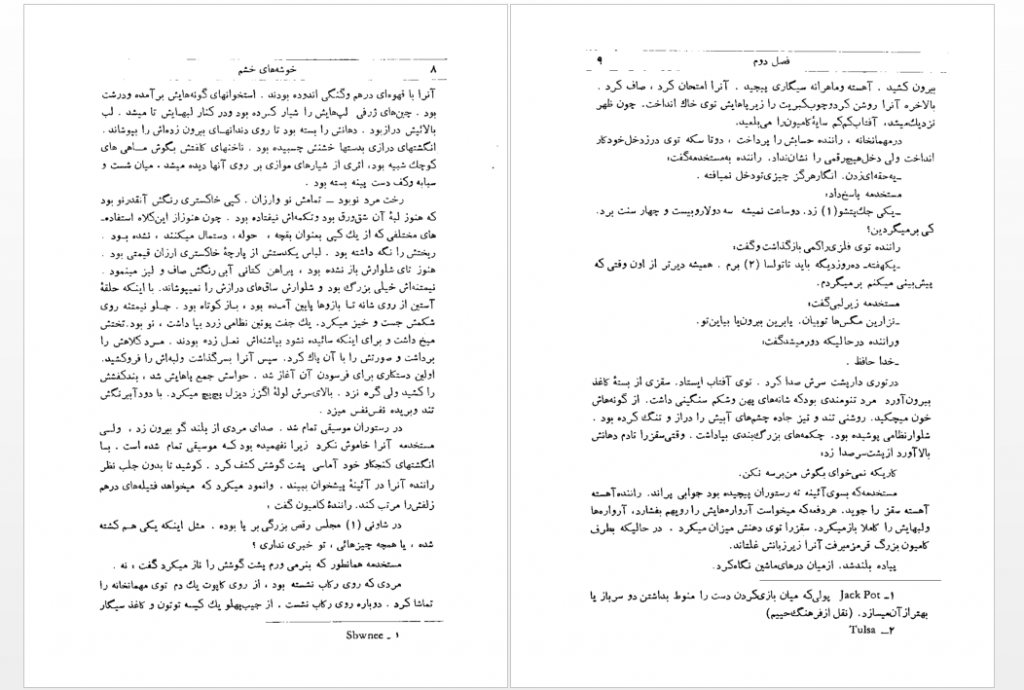 ۸ خوشه‌های خشم
آنرا با قهوه‌ای درهم وگنگی اندوده بودند . استخوانهای گونه‌هایش برآمده ودرشت
بود . چین‌های ژرفی لپ‌هایش را شیار کرده بود ودر کنار لبهایش تا میشد . لب
بالائیش درازبود . دهانش را بسته بود تا روی دندانهای بیرون زده‌اش را بپوشاند .
انگشتهای درازی بدستها خشنش چسبیده بود . ناخنهای کلفتش بگوش ماهی های
کوچك شبیه بود، اثری از شیارهای موازی بر روی آنها دیده میشد ، میان شست و
سبابه وکف دست پینه بسته بود .
رخت مرد نوبود ــ تمامش نو وارزان . کپی خاکستری رنگش آنقدرنو بود
که هنوز لبهٔ آن شق‌ورق بود وتکمه‌اش نیفتاده بود . چون هنوزاز این‌کلاه استفاده‌ـ
های مختلفی که از یك کپی بعنوان بقچه ، حوله، دستمال میکنند ، نشده بود .
ریختش را نگه داشته بود . لباس یکدستش از پارچهٔ خاکستری ارزان قیمتی بود .
هنوز تای شلوارش باز نشده بود ، پیراهن کتانی آبی رنگش صاف و لیز مینمود .
نیمتنه‌اش خیلی بزرگ بود و شلوارش ساق‌های درازش را نمیپوشاند. با اینکه حلقهٔ
آستین از روی شانه تا بازوها پایین آمده بود ، باز کوتاه بود . جلو نیمتنه روی
شکمش جست و خیز میکرد. یك جفت پوتین نظامی زرد بپا داشت ، نو بود.تختش
میخ داشت و برای اینکه سائیده نشود بپاشنه‌اش نعل زده بودند . مرد کلاهش را
برداشت و صورتش را با آن پاك کرد. سپس آنرا بسرگذاشت ولبه‌اش را فروکشید.
اولین دستکاری برای فرسودن آن آغاز شد . حواسش جمع پاهایش شد ، بندکفشش
را کشید ولی گره نزد . بالای‌سرش لولهٔ اگزز دیزل پچ‌پچ میکرد. با دودآبیرنگش
تند وبریده نفس‌نفس میزد .
در رستوران موسیقی تمام شد . صدای مردی از بلند گو بیرون زد ، ولی
مستخدمه آنرا خاموش نکرد زیرا نفهمیده بود که موسیقی تمام شده است . با
انگشتهای کنجکاو خود آماسی پشت گوشش کشف کرد . کوشید تا بدون جلب نظر
راننده آنرا در آئینهٔ پیشخوان ببیند . وانمود میکرد که میخواهد فتیله‌های درهم
زلفش‌را مرتب کند. رانندهٔ کامیون گفت ،
در شاونی (۱) مجلس رقص بزرگی بر پا بوده . مثل اینکه یکی هم کشته
شده ، یا همچه چیزهائی ، تو خبری نداری ؟
مستخدمه همانطور که بنرمی ورم پشت گوشش را ناز میکرد گفت ، نه .
مردی که روی رکاب نشسته بود ، از روی کاپوت یك دم توی مهمانخانه را
تماشا کرد . دوباره روی رکاب نشست . از جیب‌پهلو یك کیسه توتون و کاغذ سیگار
۱ ـ Sbwnee
فصل دوم ۹
بیرون کشید . آهسته وماهرانه سیگاری پیچید . آنرا امتحان کرد ، صاف کرد .
بالاخره آنرا روشن کردوچوب‌کبریت را زیرپاهایش توی خاك انداخت. چون ظهر
نزدیك‌میشد، آفتاب‌کم‌کم سایهٔ‌کامیون‌را می‌بلعید.
درمهمانخانه ، راننده حسابش را پرداخت ، دوتا سکه توی درزدخل‌خودکار
انداخت ولی دخل‌هیچ‌رقمی را نشان‌نداد. راننده به‌مستخدمه‌گفت،
ـ‌یه‌حقه‌ای‌زدن. انگارهرگز چیزی‌تودخل نمیافته .
مستخدمه پاسخ‌داد،
ـ‌یکی جك‌پتشو(۱) زد. دوساعت نمیشه سه دولاروبیست و چهار سنت برد.
کی برمیگردین؟
راننده توی فلزی‌راکمی بازگذاشت وگفت،
ـ‌یکهفته‌ـ ده‌روزدیگه باید تاتولسا (۲) برم . همیشه دیرتر از اون وقتی که
پیش‌بینی میکنم برمیگردم.
مستخدمه زیرلبی‌گفت،
ـ‌نزارین مگس‌ها توبیان. یابرین بیرون‌یا بیاین‌تو.
وراننده درحالیکه دورمیشدگفت،
ـ‌خدا حافظ .
درتوری دارپشت سرش صدا کرد . توی آفتاب ایستاد. سقزی از بستهٔ کاغذ
بیرون‌آورد مرد تنومندی بودکه شانه‌های پهن وشکم سنگینی داشت. از گونه‌هاش
خون میچکید. روشنی تند و تیز جاده چشم‌های آبیش را دراز و تنگ کرده بود .
شلوارنظامی پوشیده بود. چکمه‌های بزرگ‌بندی بپاداشت. وقتی‌سقزرا تادم دهانش
بالاآورد ازپشت‌سرصدا زد،
کاریکه نمی‌خوای بگوش من‌برسه نکن.
مستخدمه‌که بسوی‌آئینه ته رستوران پیچیده بود جوابی پراند. راننده‌آهسته
آهسته سقز را جوید. هردفعه‌که میخواست آرواره‌هایش را رویهم بفشارد، آرواره‌ها
ولبهایش را کاملا بازمیکرد. سقزرا توی دهنش میزان میکرد . در حالیکه بطرف
کامیون بزرگ قرمزمیرفت آنرا زیرزبانش غلتاند.
پیاده بلندشد. ازمیان درهای‌ماشین نگاه‌کرد.
۱ـ Jack Pot پولی‌که میان بازی‌کردن دست را منوط بداشتن دو سرباز یا
بهترازآن‌میسازد. (نقل ازفرهنگ‌حییم)
۲ـ Tulsa